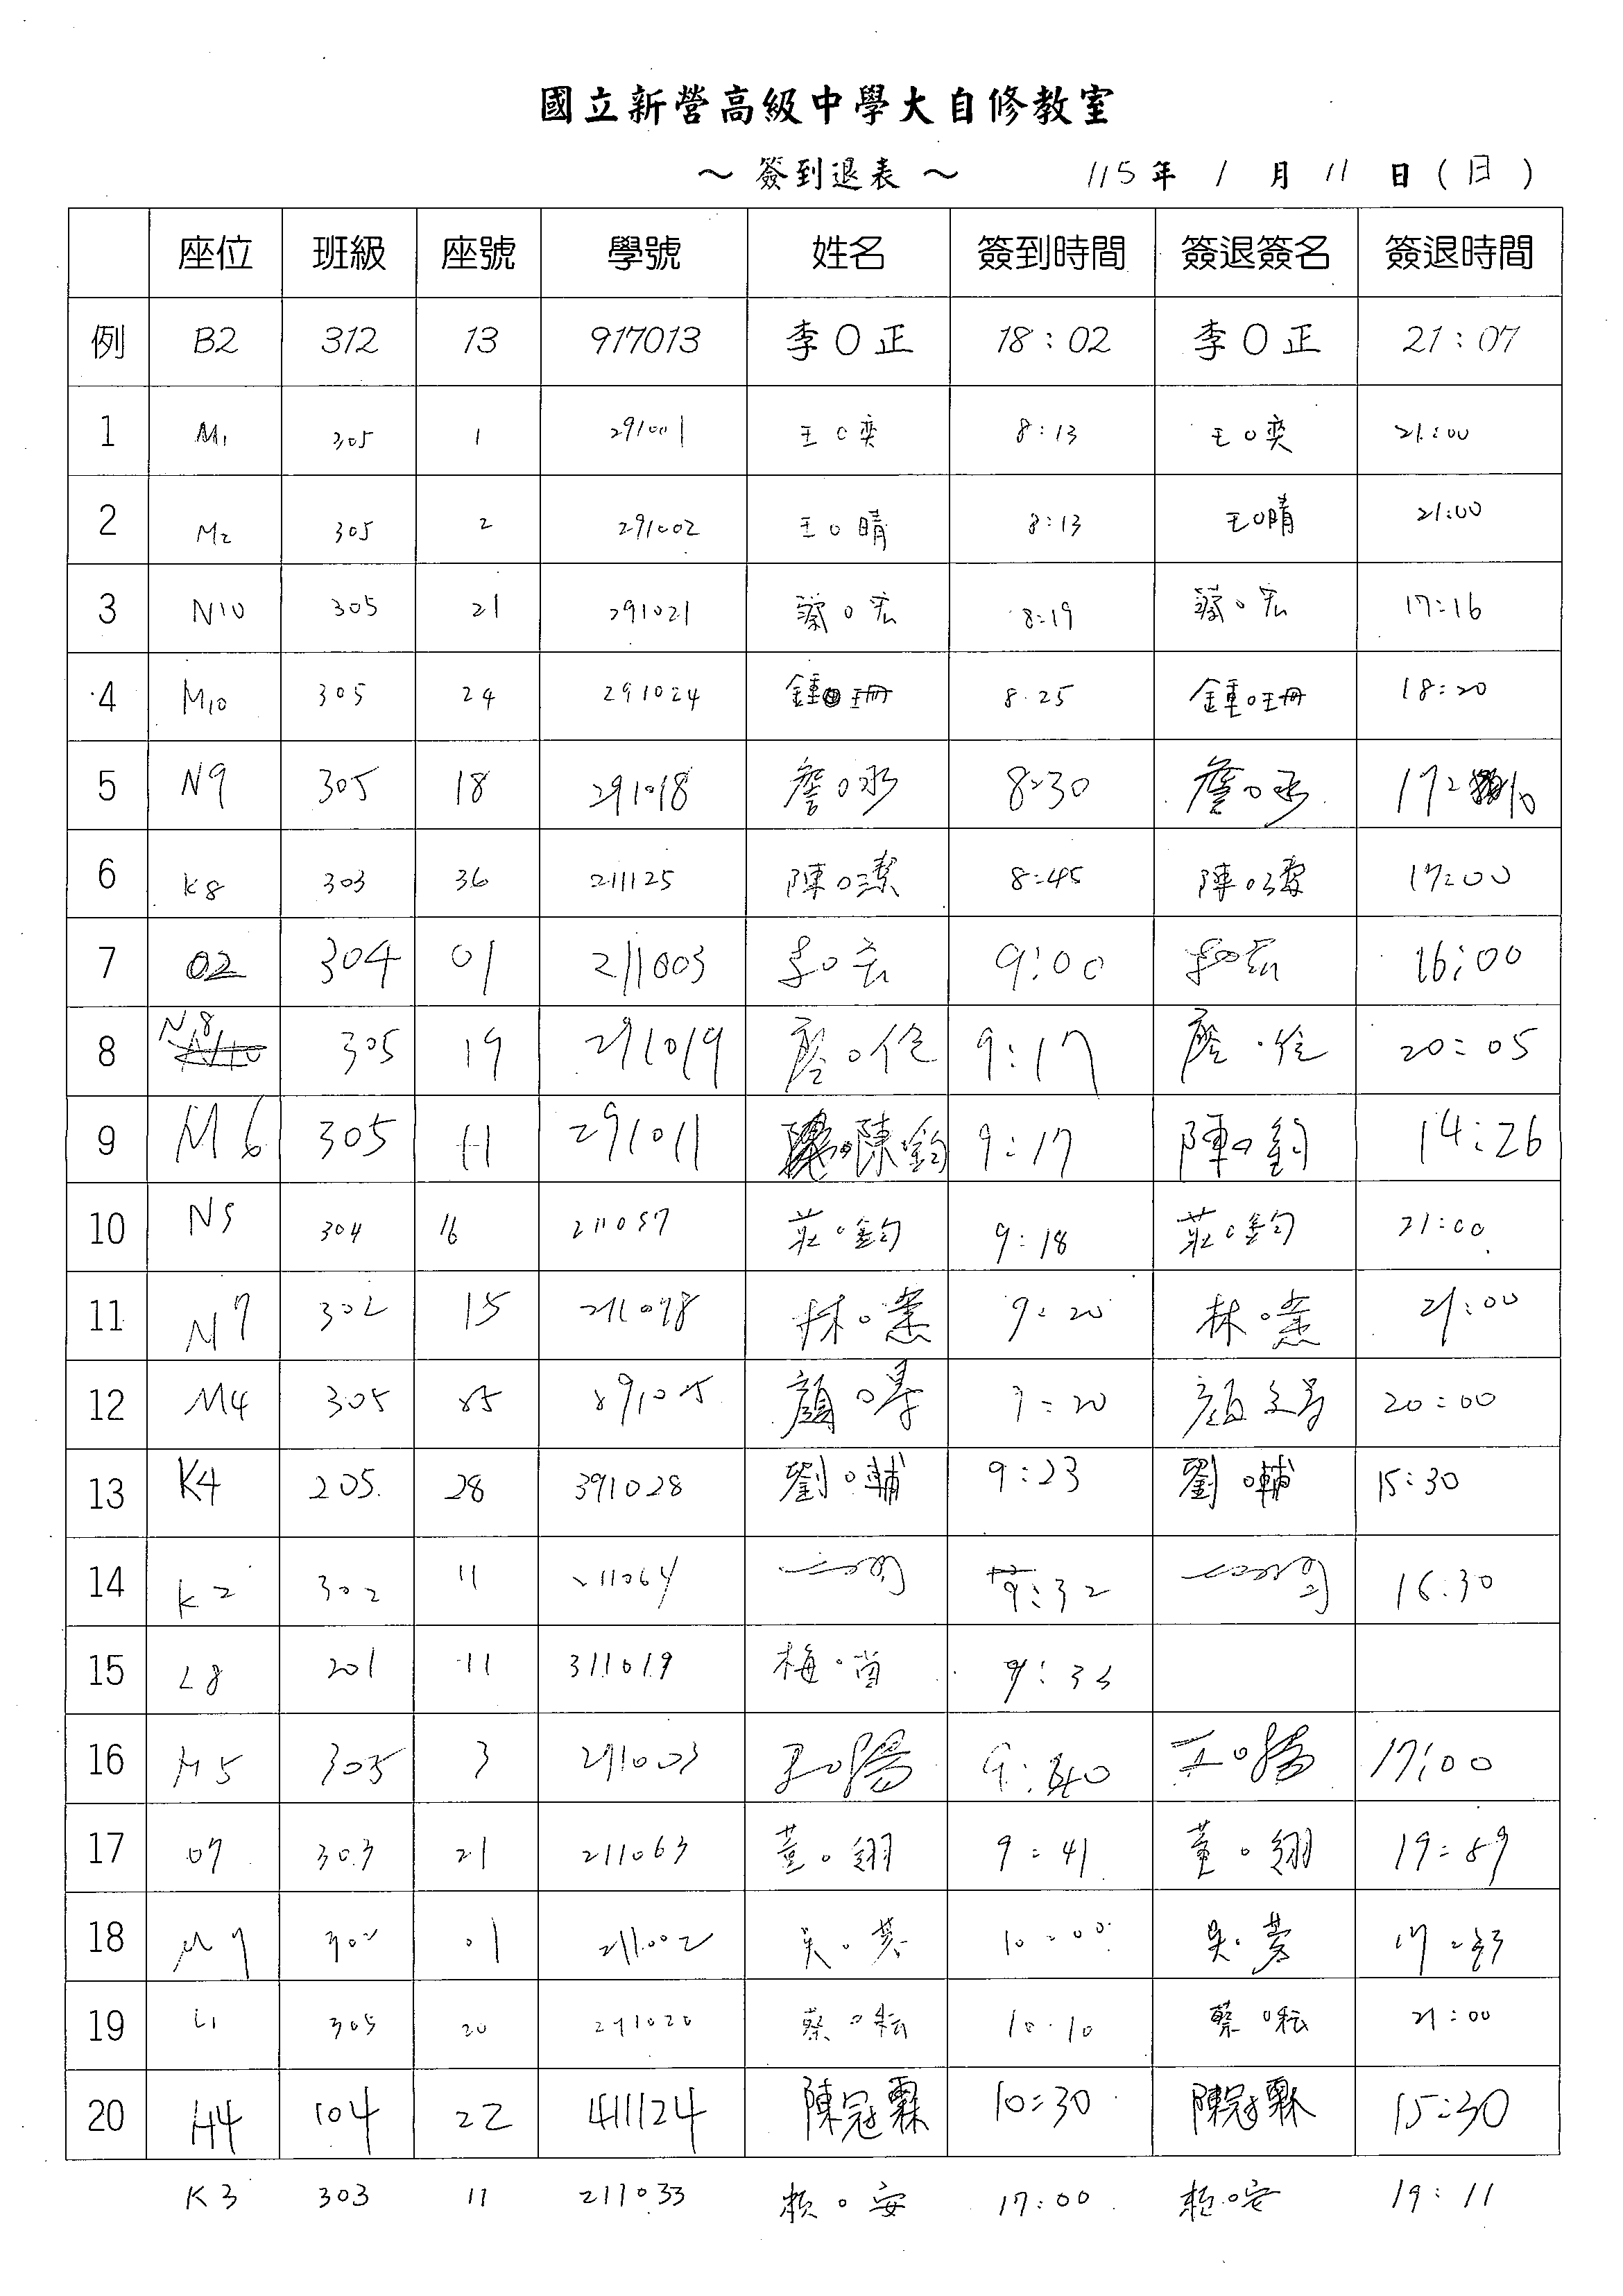 國立新營高級中學大自修教室
～ 簽到退表 ～ 115 年 1 月 11 日 ( 日 )
座位 班級 座號 學號 姓名 簽到時間 簽退簽名 簽退時間
例 B2 312 13 917013 李〇正 18:02 李〇正 21:07
1 M1 305 1 291001 王〇奕 8:13 王〇奕 21:00
2 M2 305 2 291002 王〇晴 8:13 王〇晴 21:00
3 N10 305 21 291021 蔡〇宏 8:19 蔡〇宏 17:16
4 M10 305 24 291024 鍾〇珊 8:25 鍾〇珊 18:20
5 N9 305 18 291018 詹〇 8:30 詹〇 17:10
6 K8 303 36 211125 陳〇潔 8:45 陳〇潔 17:00
7 02 304 01 211003 〇宏 9:00 16:00
8 N8 305 19 291019 詹〇佺 9:17 詹〇佺 20:05
9 M6 305 11 291011 陳〇鈞 9:17 陳〇鈞 14:26
10 N5 304 16 211057 莊〇鈞 9:18 莊〇鈞 21:00
11 N7 302 15 211098 林〇 9:20 林〇 21:00
12 M4 305 25 291025 顏〇 9:20 顏 20:00
13 K4 205 28 391028 劉〇輔 9:23 劉〇輔 15:30
14 K2 302 11 211064 9:32 16:30
15 L8 201 11 311019 梅〇 9:33
16 M5 305 3 291003 王〇陽 9:40 王〇陽 17:00
17 07 303 21 211063 董〇翎 9:41 董〇翎 19:59
18 M9 302 01 211002 吳〇 10:00 吳〇 17:33
19 L1 305 20 291020 蔡〇耘 10:10 蔡〇耘 21:00
20 H4 104 22 411124 陳冠霖 10:30 陳冠霖 15:30
K3 303 11 211033 賴〇安 17:00 賴〇安 19:11